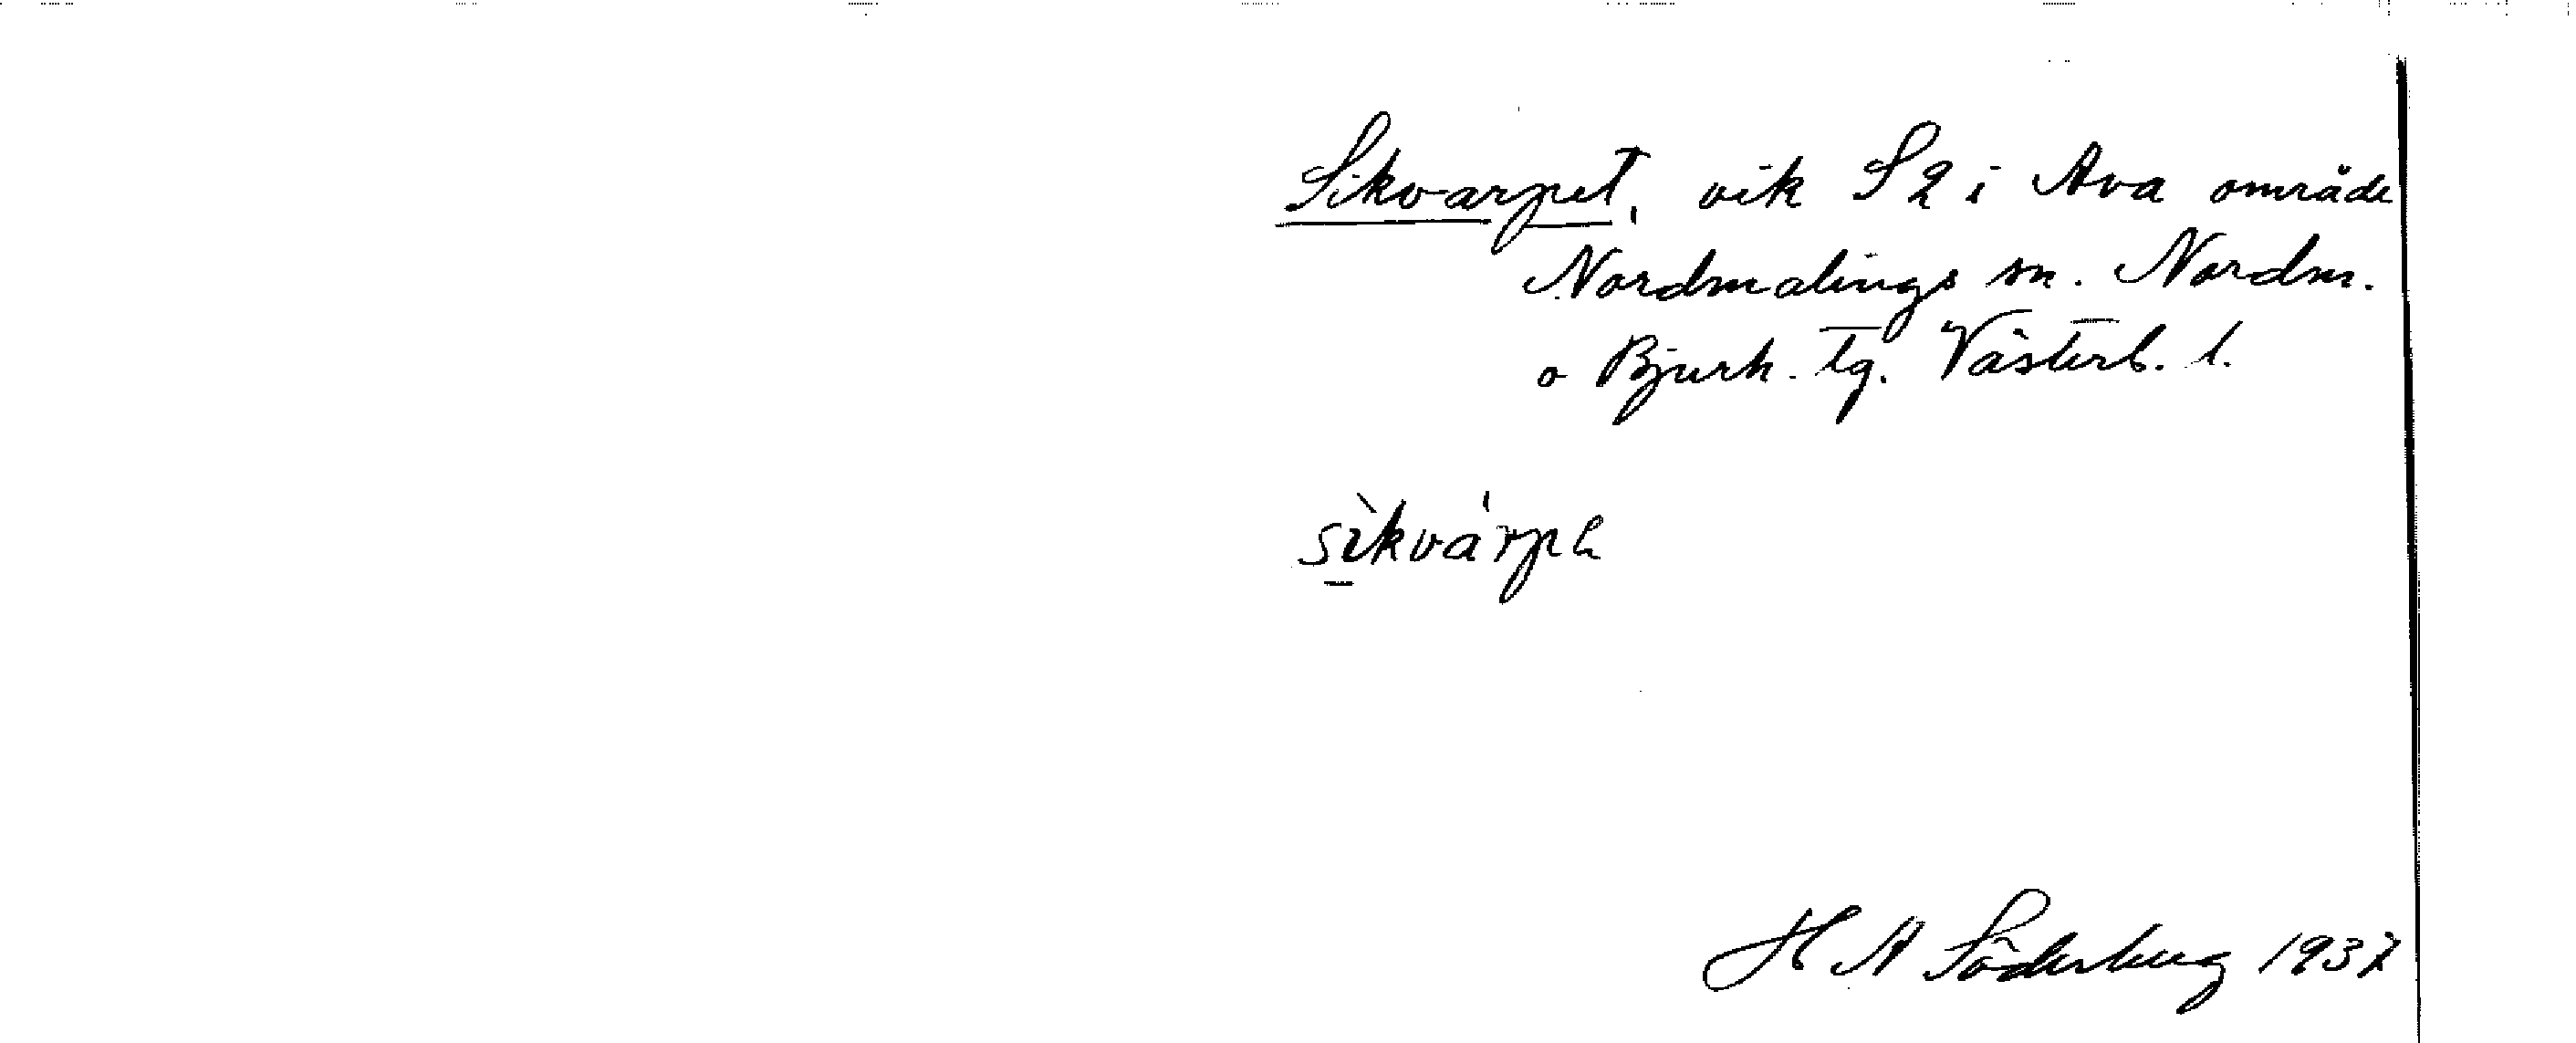 Sikvarpet, vik S 2 i Ava område
Nordmalings sn. Nordm.
o Bjurh. tg. Västerb. l.
sìkvárpe
H A Söderberg 1937